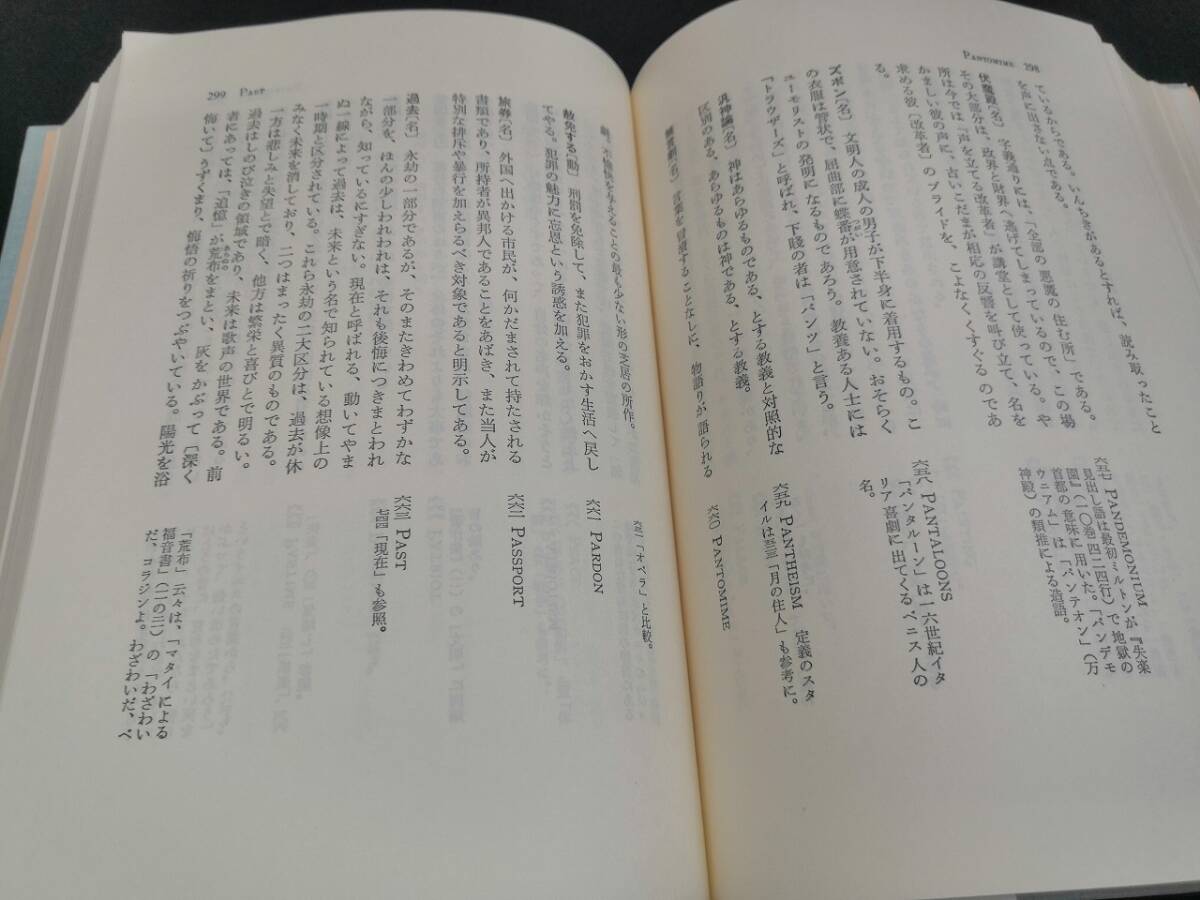 PANTOMIME 298
ているからである。いんちきがあるとすれば、読み取ったこと
を声に出さない点である。
伏魔殿〔名〕 字義通りには、「全部の悪魔の住む所」である。
その大部分は、政界と財界へ逃げてしまっているので、この場
所は今では「声を立てる改革者」が講堂として使っている。や
かましい彼の声に、古いこだまが相応の反響を叫び立て、名を
求める彼〔改革者〕のプライドを、こよなくくすぐるのであ
る。
ズボン〔名〕 文明人の成人の男子が下半身に着用するもの。こ
の衣服は管状で、屈曲部に蝶番が用意されていない。おそらく
ューモリストの発明になるものであろう。教養ある人士には
「トラウザーズ」と呼ばれ、下賤の者は「パンツ」と言う。
汎神論〔名〕 神はあらゆるものである、とする教義と対照的な
区別のある、あらゆるものは神である、とする教義。
無言劇〔名〕 言葉を冒瀆することなしに、物語りが語られる
六五七 PANDEMONIUM
見出し語は最初ミルトンが『失楽
園』(一〇巻四二四行)で地獄の
首都の意味に用いた。「パンデモ
ウニアム」は「パンテオン」(万
神殿)の類推による造語。
六五八 PANTALOONS
「パンタルーン」は一六世紀イタ
リア喜劇に出てくるベニス人の
名。
六五九 PANTHEISM 定義のスタ
イルは五三「月の住人」も参考に。
六六〇 PANTOMIME
299 PAST
劇。不愉快を与えることの最も少ない形の芝居の所作。
赦免する〔動〕 刑罰を免除して、また犯罪をおかす生活へ戻し
てやる。犯罪の魅力に忘恩という誘惑を加える。
旅券〔名〕 外国へ出かける市民が、何かだまされて持たされる
書類であり、所持者が異邦人であることをあばき、また当人が
特別な排斥や暴行を加えらるべき対象であると明示してある。
過去〔名〕 永劫の一部分であるが、そのまたきわめてわずかな
一部分を、ほんの少しわれわれは、それも後悔につきまとわれ
ながら、知っているにすぎない。現在と呼ばれる、動いてやま
ぬ一線によって過去は、未来という名で知られている想像上の
一時期と区分されている。これら永劫の二大区分は、過去が休
みなく未来を消しており、二つはまったく異質のものである。
一方は悲しみと失望とで暗く、他方は繁栄と喜びとで明るい。
過去はしのび泣きの領域であり、未来は歌声の世界である。前
者にあっては、「追憶」が荒布をまとい、灰をかぶって〔深く
悔いて〕うずくまり、悔悟の祈りをつぶやいている。陽光を浴
「オペラ」と比較。
六六一 PARDON
六六二 PASSPORT
六六三 PAST
七四四「現在」も参照。
「荒布」云々は、「マタイによる
福音書」(一一の二一)の「わざわい
だ、コラジンよ。わざわいだ、ベ